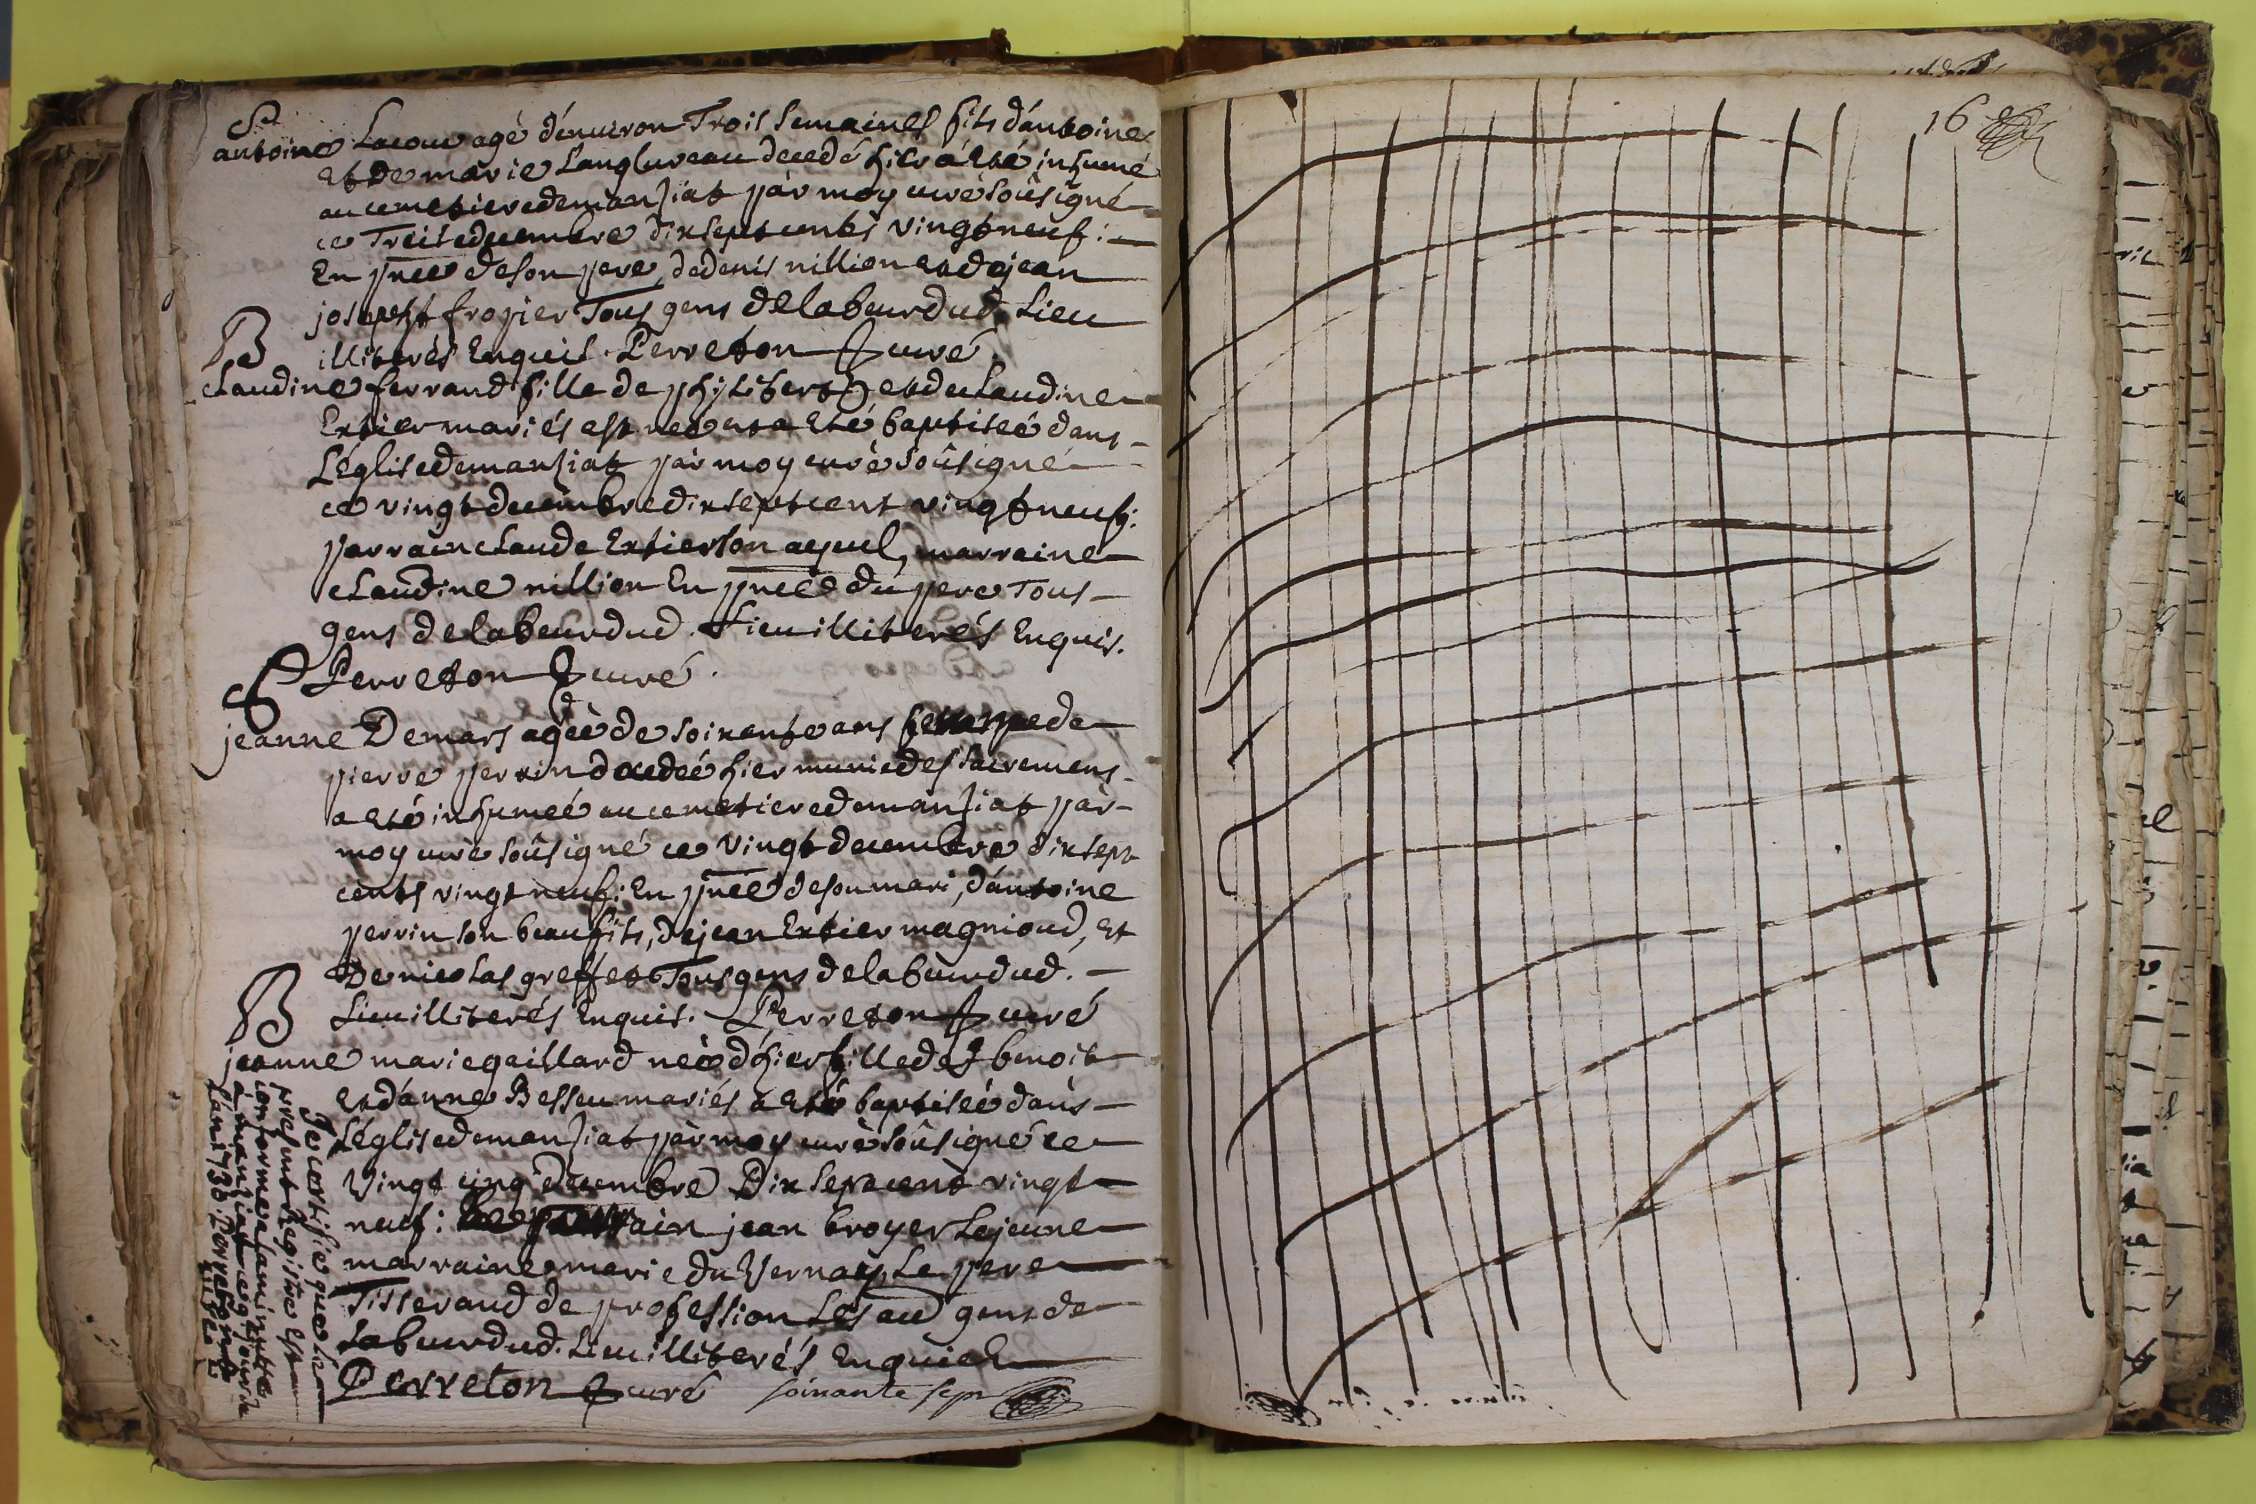 S
antoine Lacour agé d'enuiron Trois semaines fils d'antoine
et de marie Langlureau decedé hier a eté inhumé
au cemetiere de manziat par moy curé soûsigné
ce Treise decembre dix sept cents vingt neuf :
En pnce de son pere, de denis nillion et de jean
josepht froyier Tous gens de labeur dud. Lieu
illiterés Enquis. Perreton curé
B
claudine ferrand fille de philibert et de claudine
Extier mariés est neé et a eté baptiseé dans
L'église de manziat par moy curé soûsigné
ce vingt decembre dix sept cent vingt neuf :
parrain claude Extier son ayeul, marraine
claudine nillion En pnce du pere Tous
gens de labeur dud. Lieu illiterés Enquis.
Perreton curé.
S
jeanne Demars ageé de soixante ans femme de
pierre perrin decedeé hier munie des sacremens
a eté inhumeé au cemetiere de manziat par
moy curé soûsigné ce vingt decembre dix sept
cents vingt neuf : En pnce de son mari, d'antoine
perrin son beau fils, de jean Extier magnioud, et
De nicolas greffet Tous gens de labeur dud.
Lieu illiterés Enquis. Perreton curé
B
jeanne marie gaillard neé d'hier fille de benoit
et d'anne Besseu mariés a eté baptiseé dans
L'église de manziat par moy curé soûsigné ce
Vingt cinq decembre Dix sept cent vingt
neuf : jean broyer Lejeune
marraine marie du Vernay, Le pere
Tisserand de profession Les au gens de
labeur dud. Lieu illiterés Enquis
Perreton curé soixante sept
Je certifie que le
present Registre est
conforme a la minutte
a manziat ce jour de
L'an 1730. Perreton
curé
16